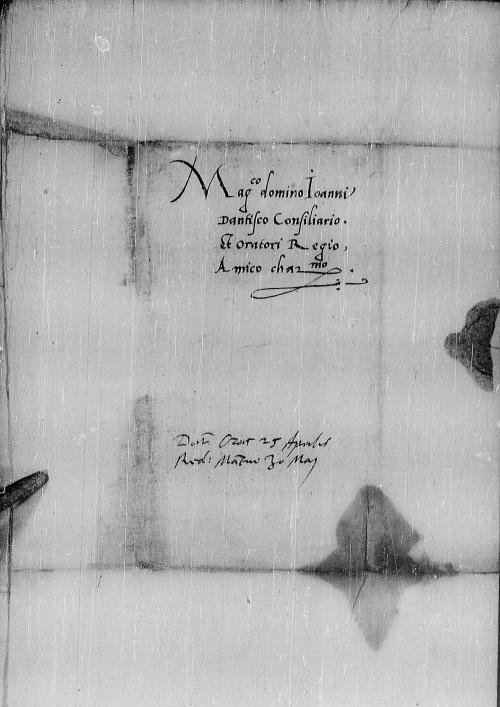 Mag^co domino Ioanni
Dantisco Consiliario.
Et Oratori Regio,
Amico char^mo.
Dat Crac 25 Aprilis
Red: Mantue 30 Maij